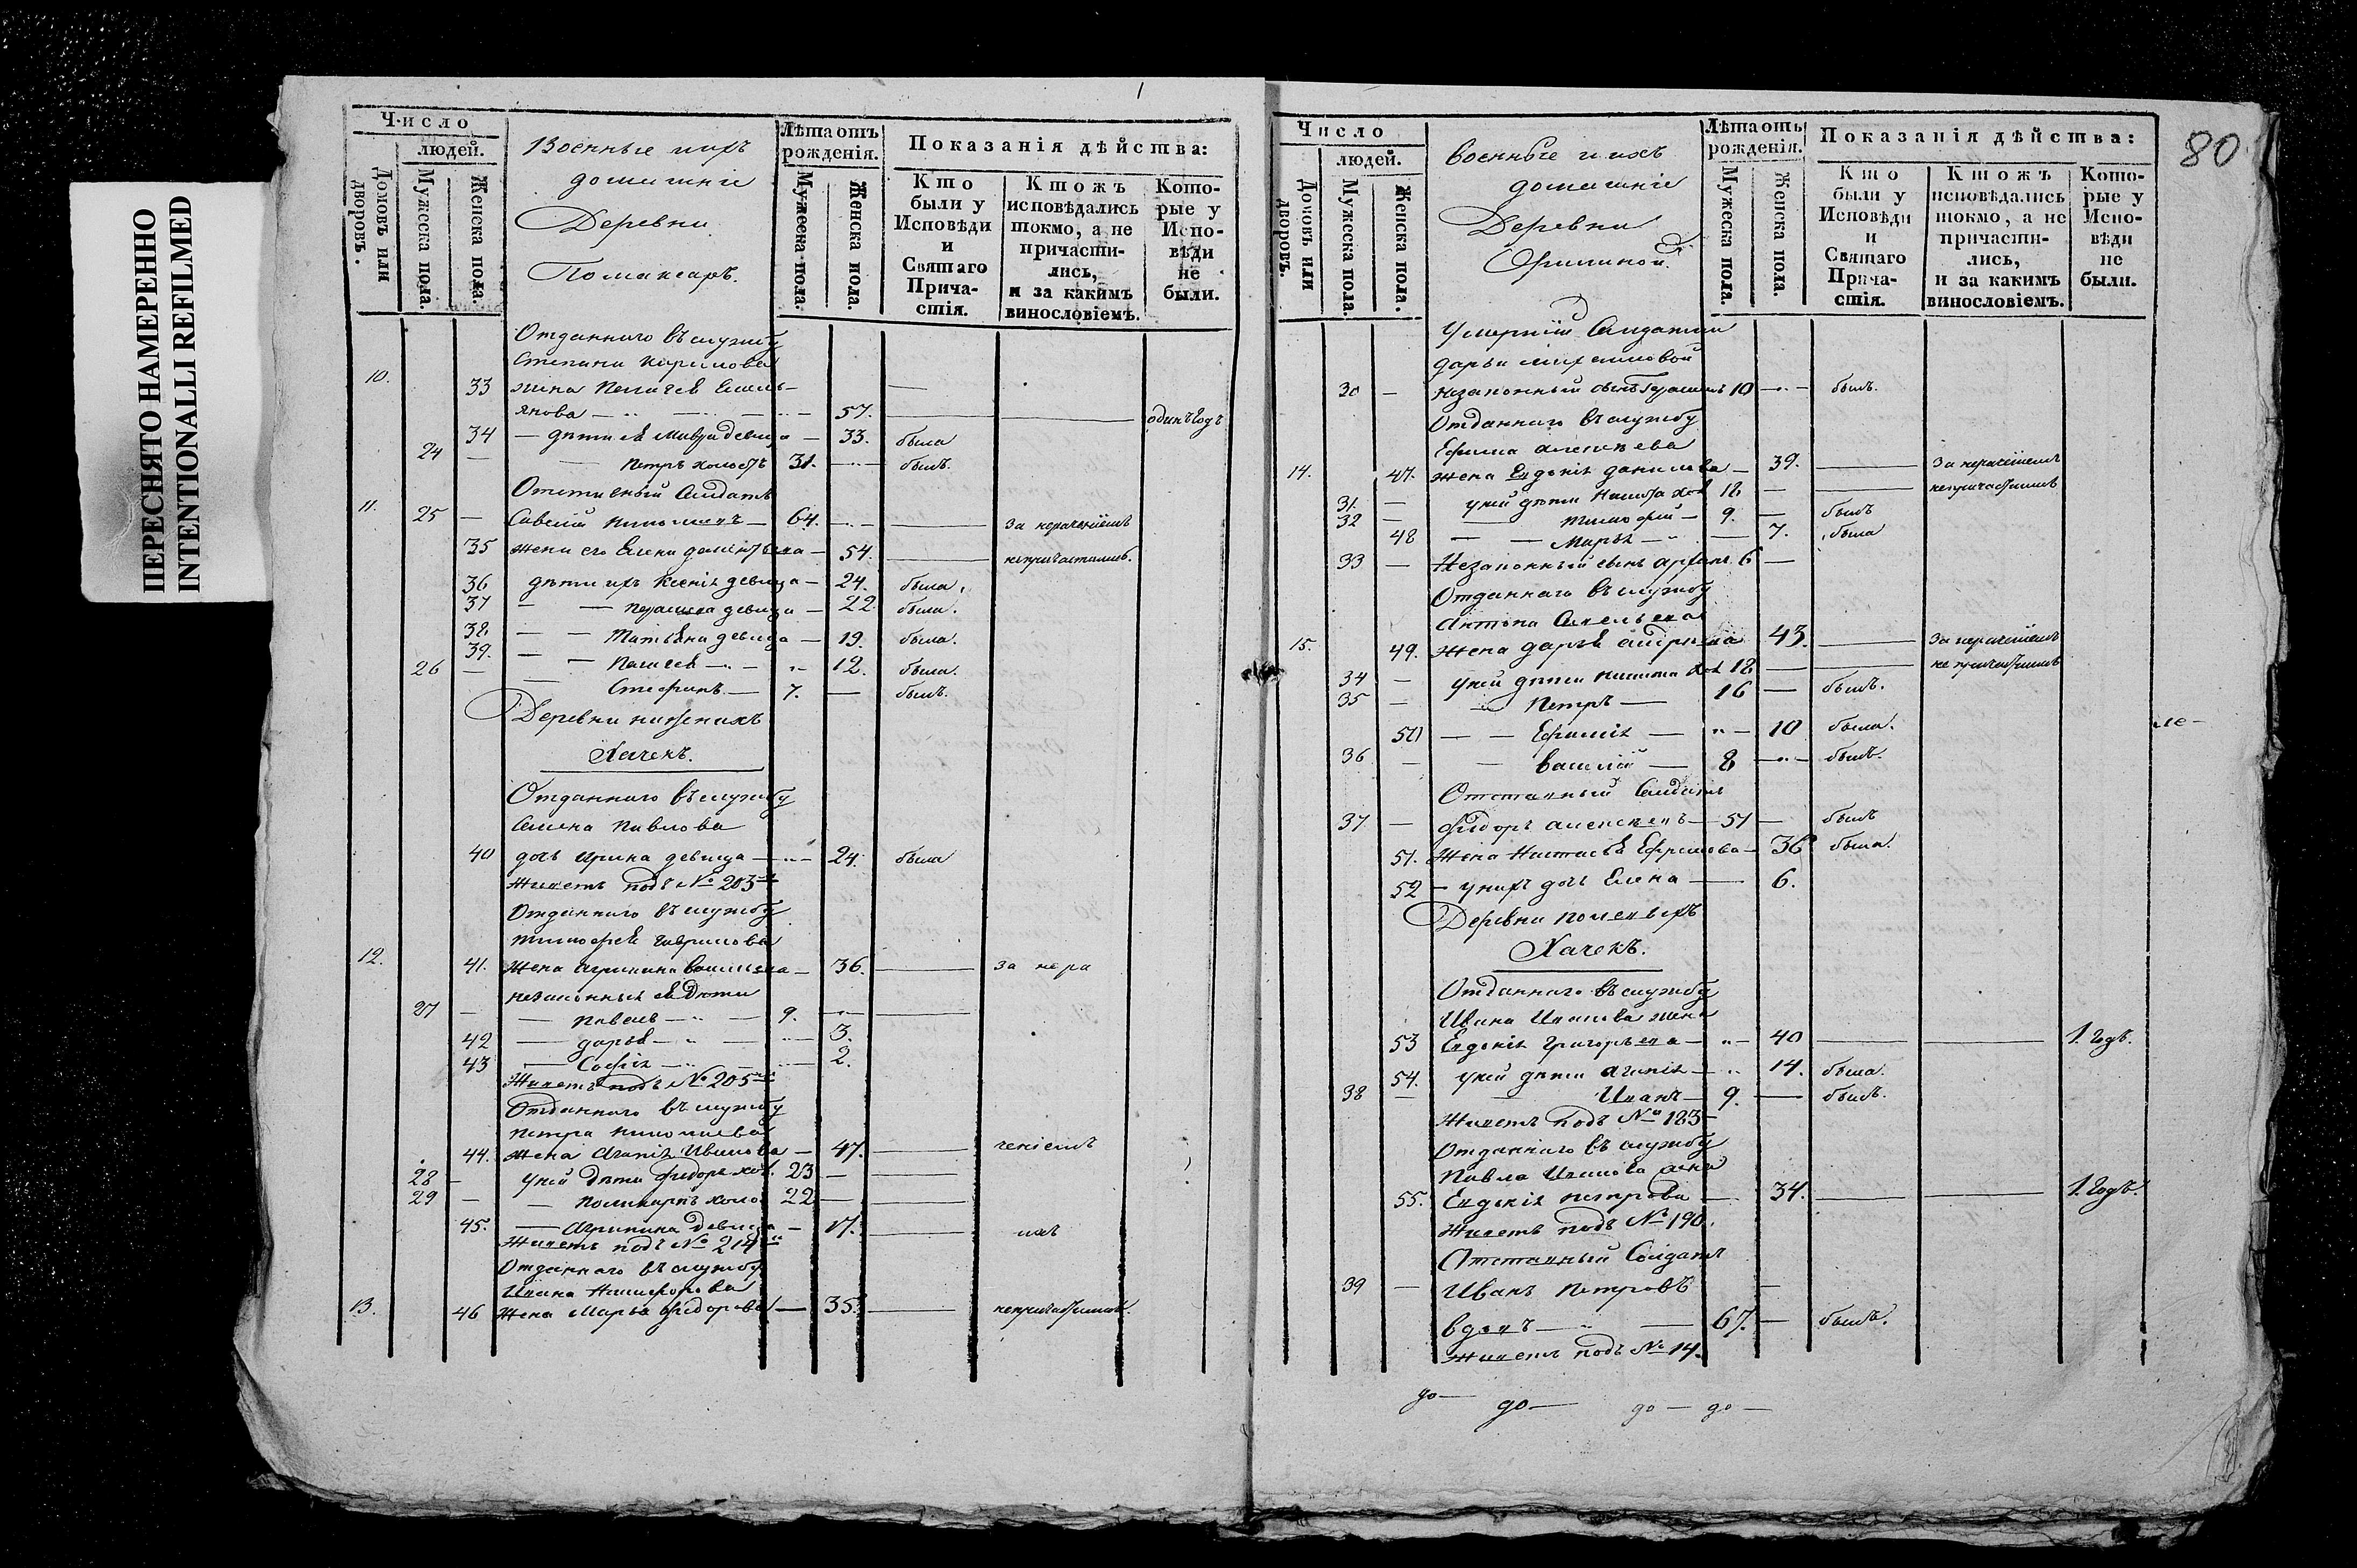 ПЕРЕСНЯТО НАМЕРЕННО
INTENTIONALLI REFILMED
Число
людей.
Домовъ или дворовъ.
Мужеска пола.
Женска пола.
Военные и ихъ
домашніе
Деревни
Лѣта отъ рожденія.
Мужеска пола.
Женска пола.
Показанія дѣйства:
Кто были у Исповѣди и Святаго Причастія.
Ктожъ исповѣдались токмо, а не причастились, и за какимъ винословіемъ.
Которые у Исповѣди не были.
Отданнаго въ службу
Степана
10. 33 жена Пелагея Емель-
янова 57. одинъ годъ
34 дѣти ея Мавра девица 33. была
24 Петръ холостъ 31. былъ.
Отставный Солдатъ
11. 25 Савелій 64. За нераченіемъ
35 жена его Елена 54. непричастились.
36 дѣти ихъ Ксенія девица 24. была.
37 девица 22. была.
38. Татьяна девица 19. была.
39. Пелагея 12. была.
26 Стефанъ 7. былъ.
Деревни
Хачекъ.
Отданнаго въ службу
Семена Павлова
40 дочь Ирина девица 24. была
Живетъ подъ № 203
Отданнаго въ службу
Тимофея Гаврилова
12. 41. Жена Агрипина Васильева 36. За нера
незаконныя ея Дѣти
27 Павелъ 9.
42 Дарья 3.
43 Софія 2.
Живетъ подъ № 205
Отданнаго въ службу
Петра Николаева
44. Жена Агапія Иванова 47. ченіемъ
28 у ней Дѣти Фидоръ хол. 23
29 Поликарпъ холо. 22
45. Агрипина Девица 17.
Живетъ подъ № 214
Отданнаго въ службу
Ивана Никифорова
13. 46 Жена Марья Фидорова 35. непричастились.
80
Число
людей.
Домовъ или дворовъ.
Мужеска пола.
Женска пола.
Военные и ихъ
домашніе
Деревни
Лѣта отъ рожденія.
Мужеска пола.
Женска пола.
Показанія дѣйства:
Кто были у Исповѣди и Святаго Причастія.
Ктожъ исповѣдались токмо, а не причастились, и за какимъ винословіемъ.
Которые у Исповѣди не были.
Умершій Солдатки
Дарьи
30 незаконный сынъ 10 былъ.
Отданнаго въ службу
Ефима Алексѣева
14. 47. Жена Евдокія Данилова 39. За нераченіемъ
31. у ней дѣти Никита хол 18 непричастились
32 Тимофей 9. былъ
48 Марья 7. была
33 Незаконный сынъ 6
Отданнаго въ службу
Антона
15. 49. Жена Дарья 43. За нераченіемъ
34 у ней дѣти Никита хол 18 не причастились
35 Петръ 16 былъ.
50 Ефимія 10 была.
36 Василій 8 былъ.
Отставный Солдатъ
37 Фидоръ Алексѣевъ 51 былъ
51. Жена Настасья Ефремова 36 была.
52 у нихъ дочь Елена 6.
Деревни
Хачекъ.
Отданнаго въ службу
Ивана Иванова жена
53 Евдокія Григорьева 40 1. Годъ.
54. у ней дѣти Агапія 14. была.
38 Иванъ 9. былъ.
Живетъ подъ № 183
Отданнаго въ службу
Павла Иванова жена
55. Евдокія Петрова 34. 1. Годъ.
Живетъ подъ № 190.
Отставный Солдатъ
39 Иванъ Петровъ
вдовъ 67. былъ.
Живетъ подъ № 14.
до до до до